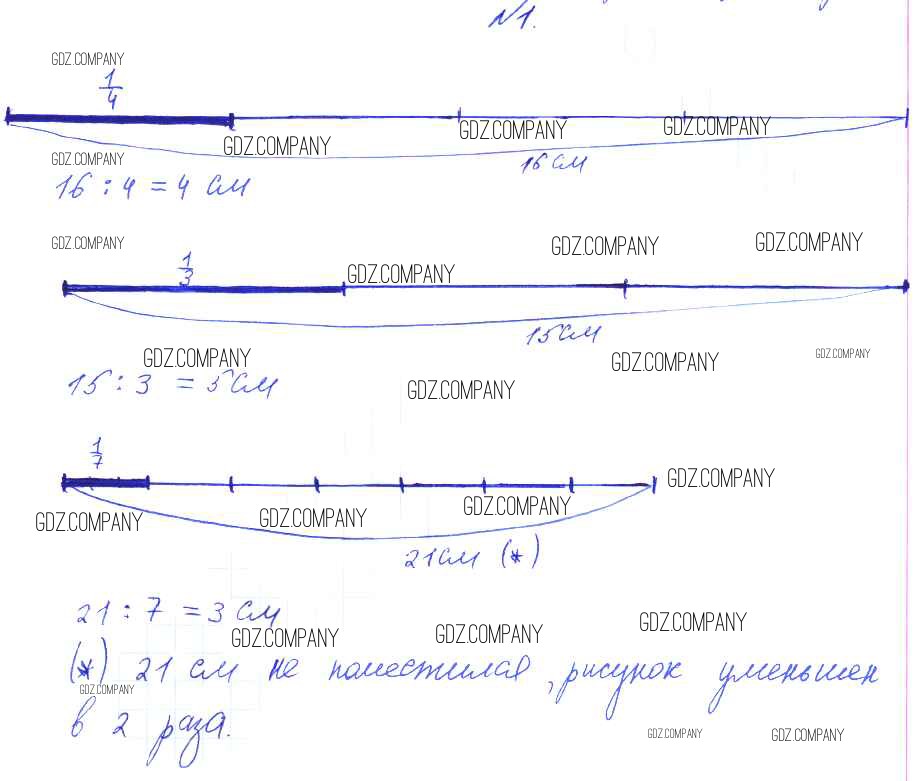 №1.
GDZ.COMPANY
1/4
GDZ.COMPANY GDZ.COMPANY
GDZ.COMPANY
GDZ.COMPANY 16 см
16 : 4 = 4 см
GDZ.COMPANY GDZ.COMPANY GDZ.COMPANY
1/3 GDZ.COMPANY
15 см
GDZ.COMPANY GDZ.COMPANY GDZ.COMPANY
15 : 3 = 5 см GDZ.COMPANY
1/7
GDZ.COMPANY
GDZ.COMPANY GDZ.COMPANY GDZ.COMPANY
21 см (*)
21 : 7 = 3 см
GDZ.COMPANY GDZ.COMPANY GDZ.COMPANY
(*) 21 см не поместился, рисунок уменьшен
GDZ.COMPANY
в 2 раза.
GDZ.COMPANY GDZ.COMPANY